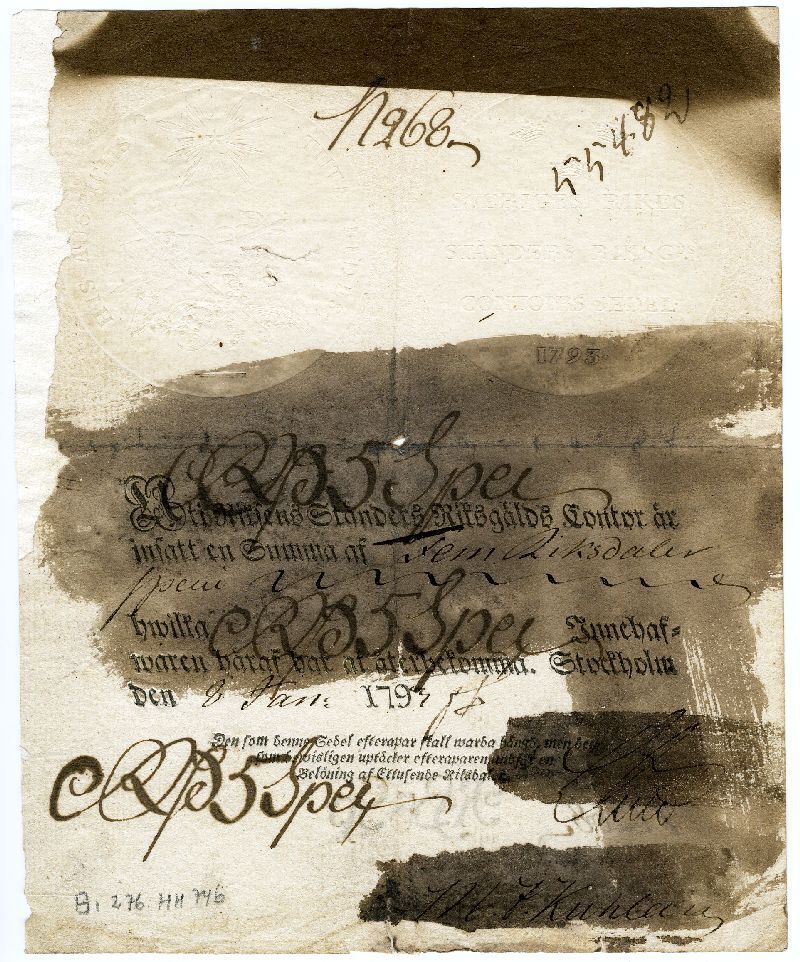 N 268.
55482
SVERIGES RIKES
STÄNDERS RIKSG:S
CONTOIRS SEDEL.
1793
RD 5 Spec
Uti Riksens Ständers Riksgälds Contor är
insatt en Summa af Fem Riksdaler
specie
hwilka RD 5 Spec Innehaf-
waren häraf har at återbekomma. Stockholm
den 8 Jan: 1794
Den som denna Sedel efterapar skall warda hängd, men den
som bewisligen uptäcker efteraparen undfår en
Belöning af Ettusende Riksdaler.
RD 5 Spec
B1 276 HH 746